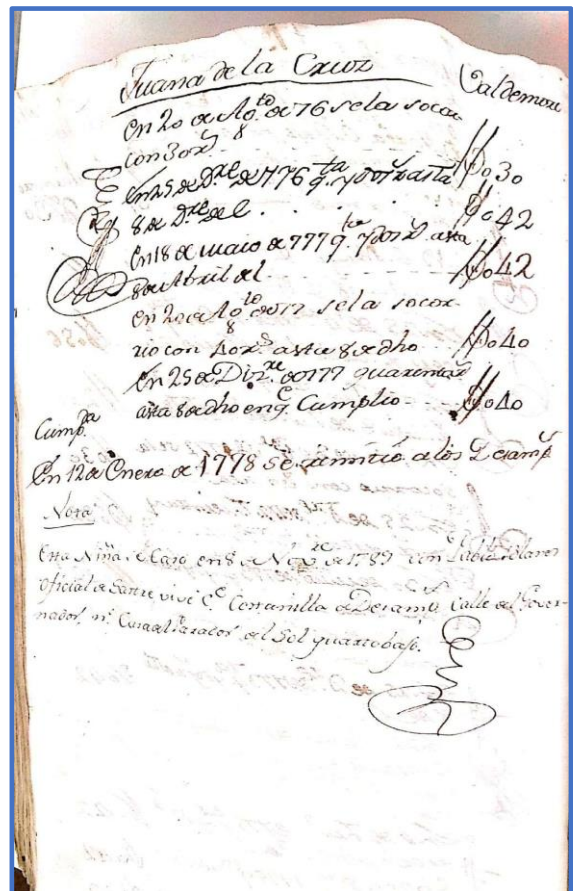 Juana de la Cruz Valdemoro
En 20 de Ag.to de 76 se la socor
con 30 r.s 030
En 25 de D.re de 1776 q.ta y dos r.s asta
8 de D.re de el 042
En 18 de maio de 777 q.ta y dos r.s asta
8 de Abril del 042
En 20 de Ag.to de 77 se la socor-
rio con 40 r.s asta 8 de dho 040
En 25 de Diz.re de 777 quarenta r.s
asta 8 de dho en q.e Cumplio 040
Cump.da
En 12 de Enero de 1778 se remitió a los Desamp.s
Nota
Esta Niña se Caso en 8 de Nov.re de 1789 con
oficial de Sastre vive C.e Desamp.s Calle del Gover-
nador, n.o del Sol quarto bajo.